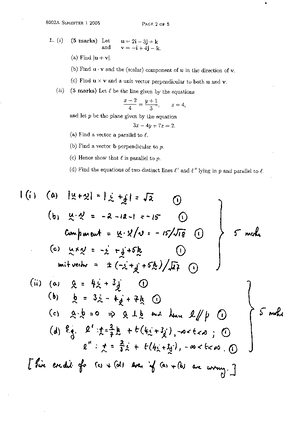 8002A SEMESTER 1 2005 PAGE 2 OF 5
1. (i) (5 marks) Let u = 2i − 3j + k
and v = −i + 4j − k.
(a) Find |u + v|.
(b) Find u · v and the (scalar) component of u in the direction of v.
(c) Find u × v and a unit vector perpendicular to both u and v.
(ii) (5 marks) Let ℓ be the line given by the equations
(x − 2)/4 = (y + 1)/3, z = 4,
and let p be the plane given by the equation
3x − 4y + 7z = 2.
(a) Find a vector a parallel to ℓ.
(b) Find a vector b perpendicular to p.
(c) Hence show that ℓ is parallel to p.
(d) Find the equations of two distinct lines ℓ′ and ℓ″ lying in p and parallel to ℓ.
1(i) (a) |u+v| = |i + j| = √2 ①
(b) u·v = −2−12−1 = −15 ①
component = u·v/v = −15/√18 ①
(c) u×v = −i + j + 5k ①
unit vector = ± (−i + j + 5k)/√27 ①
5 marks
(ii) (a) a = 4i + 3j ①
(b) b = 3i − 4j + 7k ①
(c) a·b = 0 ⇒ and hence ℓ // p ①
(d) E.g. ℓ′: r = k + t(4i+3j), −∞<t<∞; ①
ℓ″: r = i + t(4i+3j), −∞<t<∞. ①
5 marks
[Give credit for (c) + (d) even if (a) + (b) are wrong.]